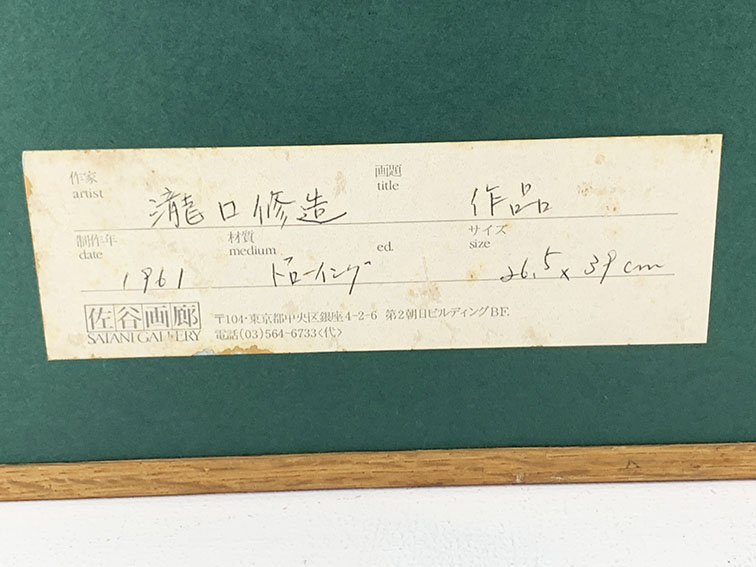 作家 画題
artist title
瀧口修造 作品
制作年 材質 サイズ
date medium ed. size
1961 ドローイング 26.5 × 39 cm
佐谷画廊 〒104・東京都中央区銀座4-2-6 第2朝日ビルディングBF.
SATANI GALLERY 電話(03)564-6733〈代〉